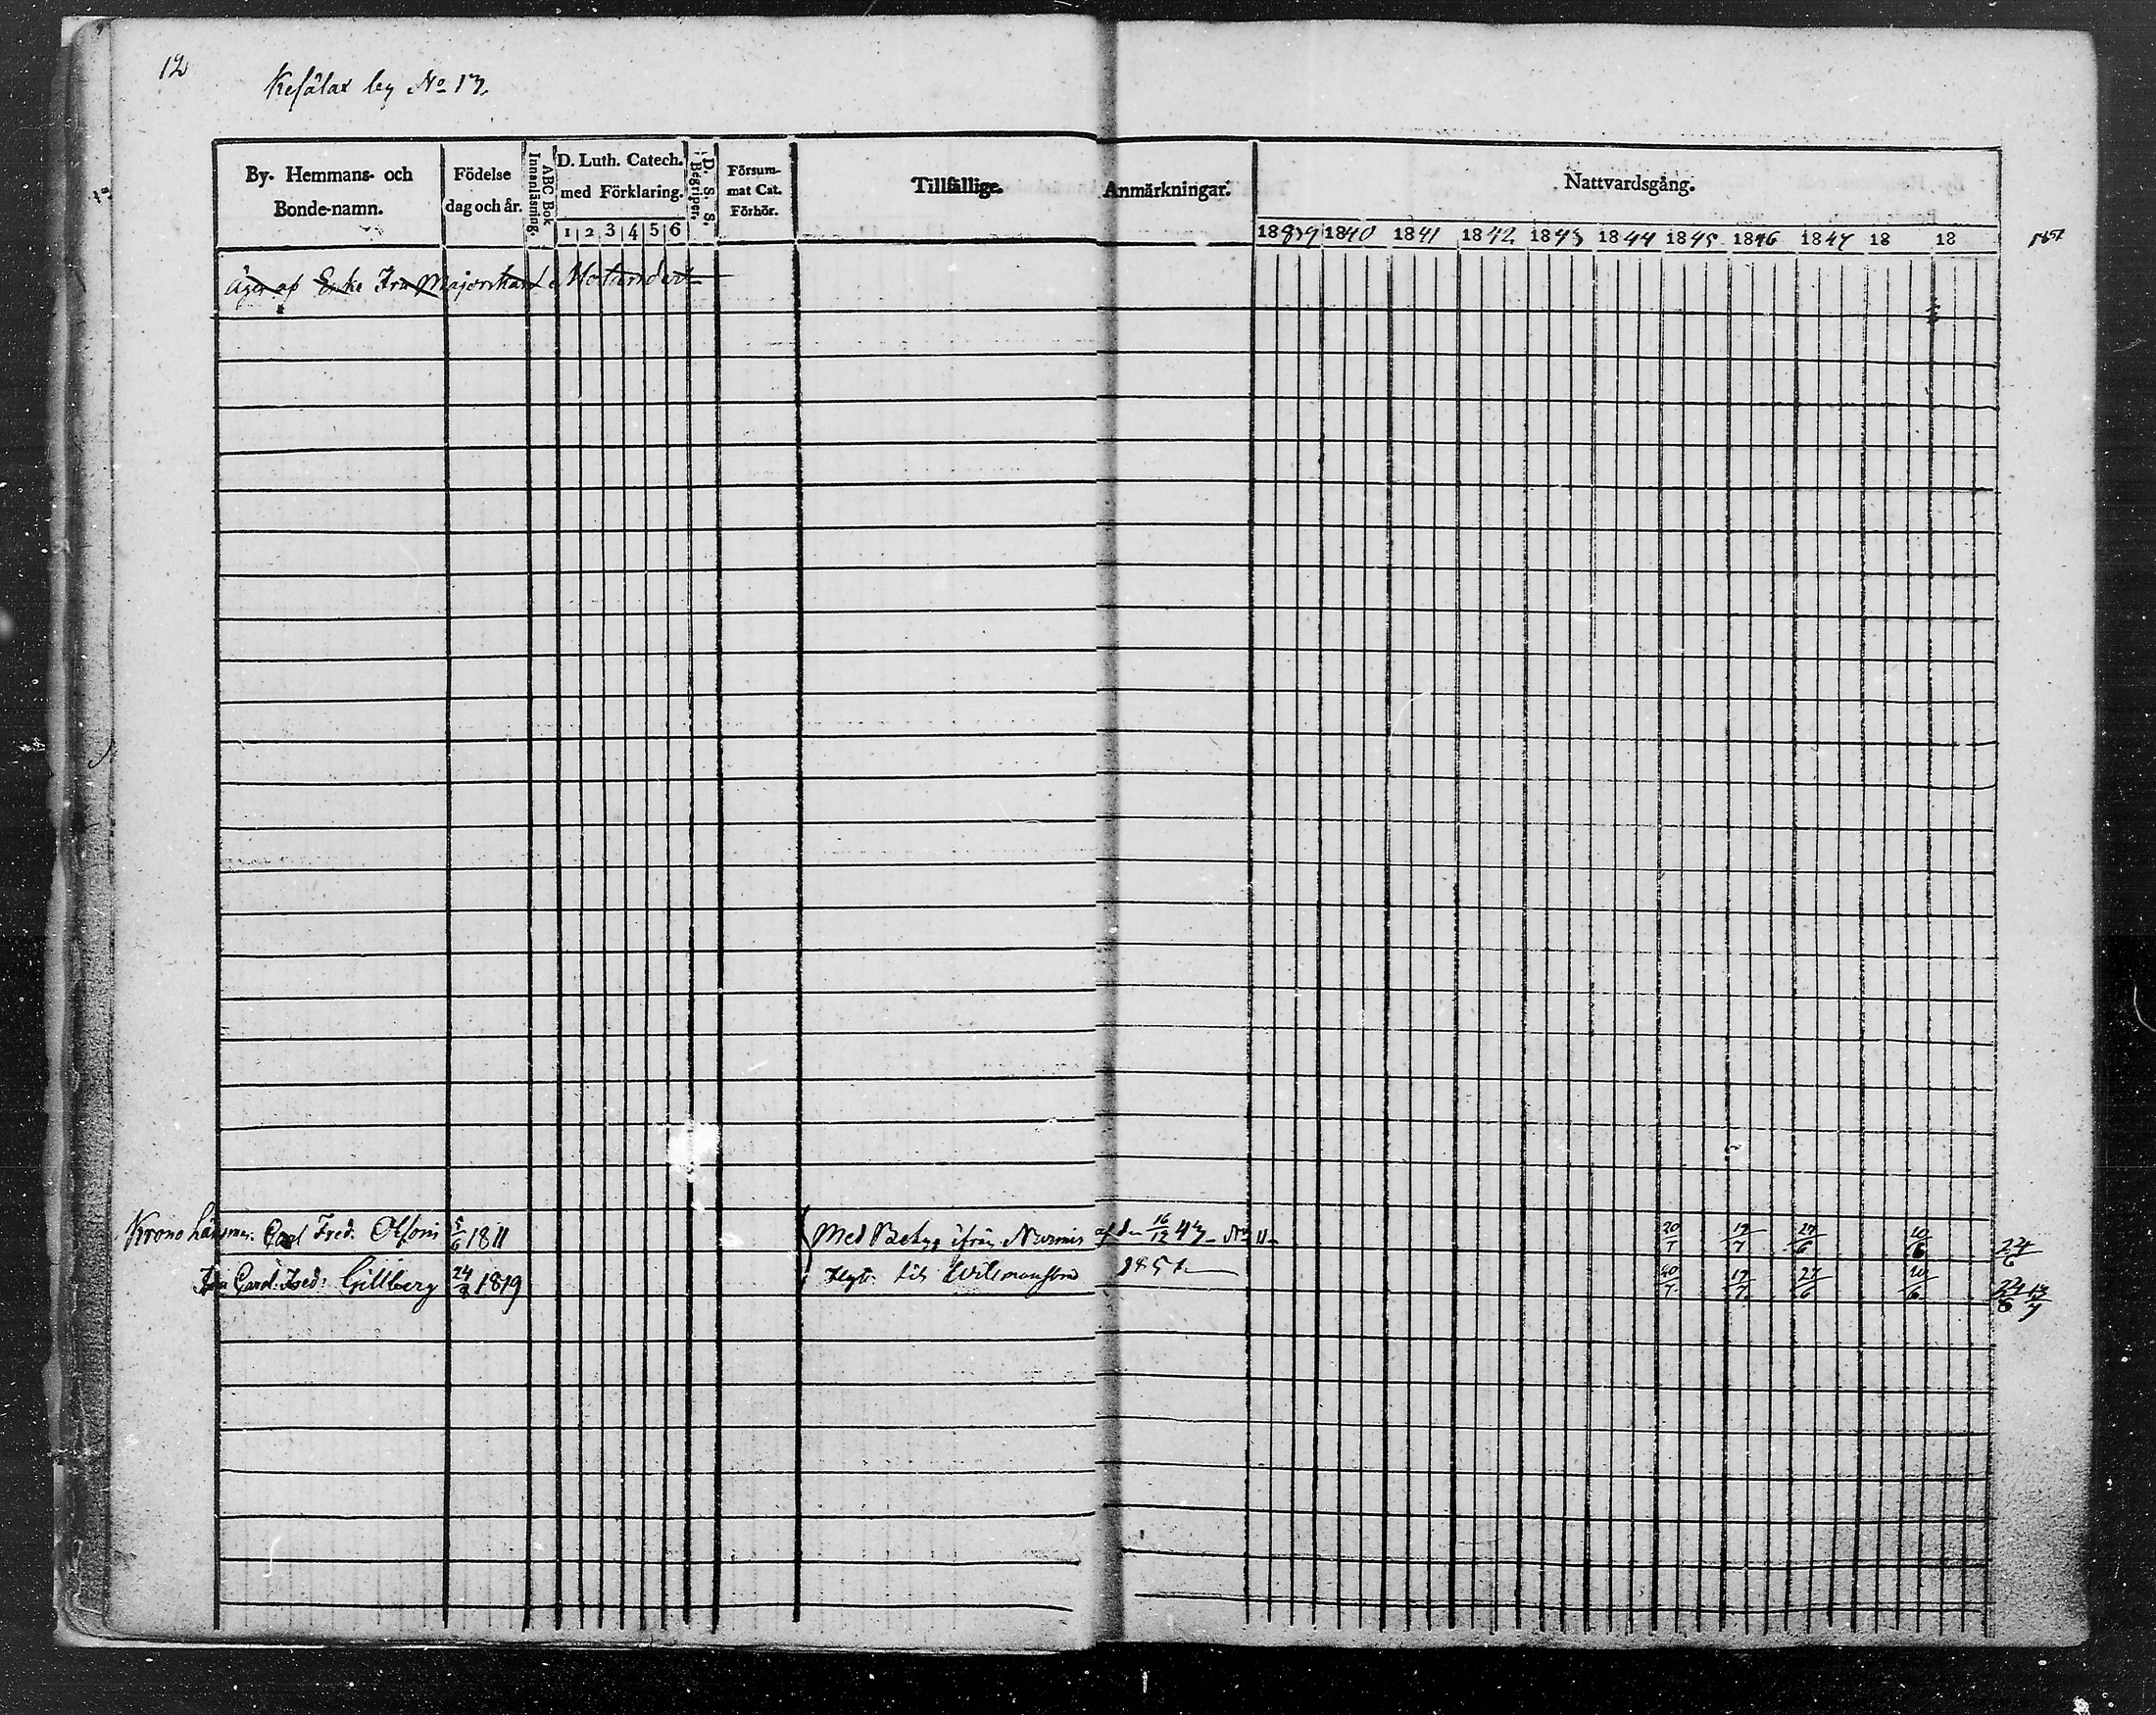 12
Kesälax by No 13.
By- Hemmans- och Bonde-namn.
Födelse dag och år.
ABC Bok Innanläsning.
D. Luth. Catech. med Förklaring.
1 2 3 4 5 6
D. S. S. Begriper.
Försummat Cat. Förhör.
Tillfällige Anmärkningar.
Nattvardsgång.
1839 1840 1841 1842 1843 1844 1845 1846 1847 18 18 1851
äges af Enke Fru Majorskan
Krono Länsman Carl Fred. 5/6 1811 Med Betyg ifrån Nurmis af den 16/12 43 No 11 20/7 19/7 27/6 10/6 24/6
Fru Carol. Fred: Gillberg 24/3 1819 Flytt. till Wilmanstrand 1851 20/7 19/7 27/6 10/6 24/8 13/7